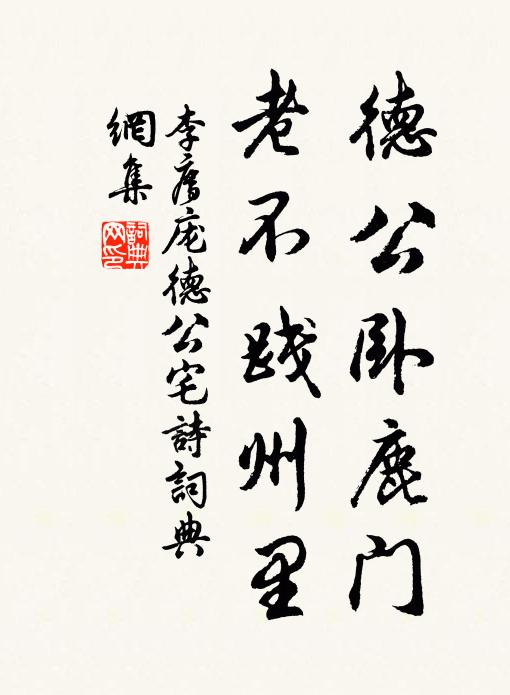 德公卧鹿门
老不践州里
李廌庞德公宅詩詞典
網集
詞典
网印